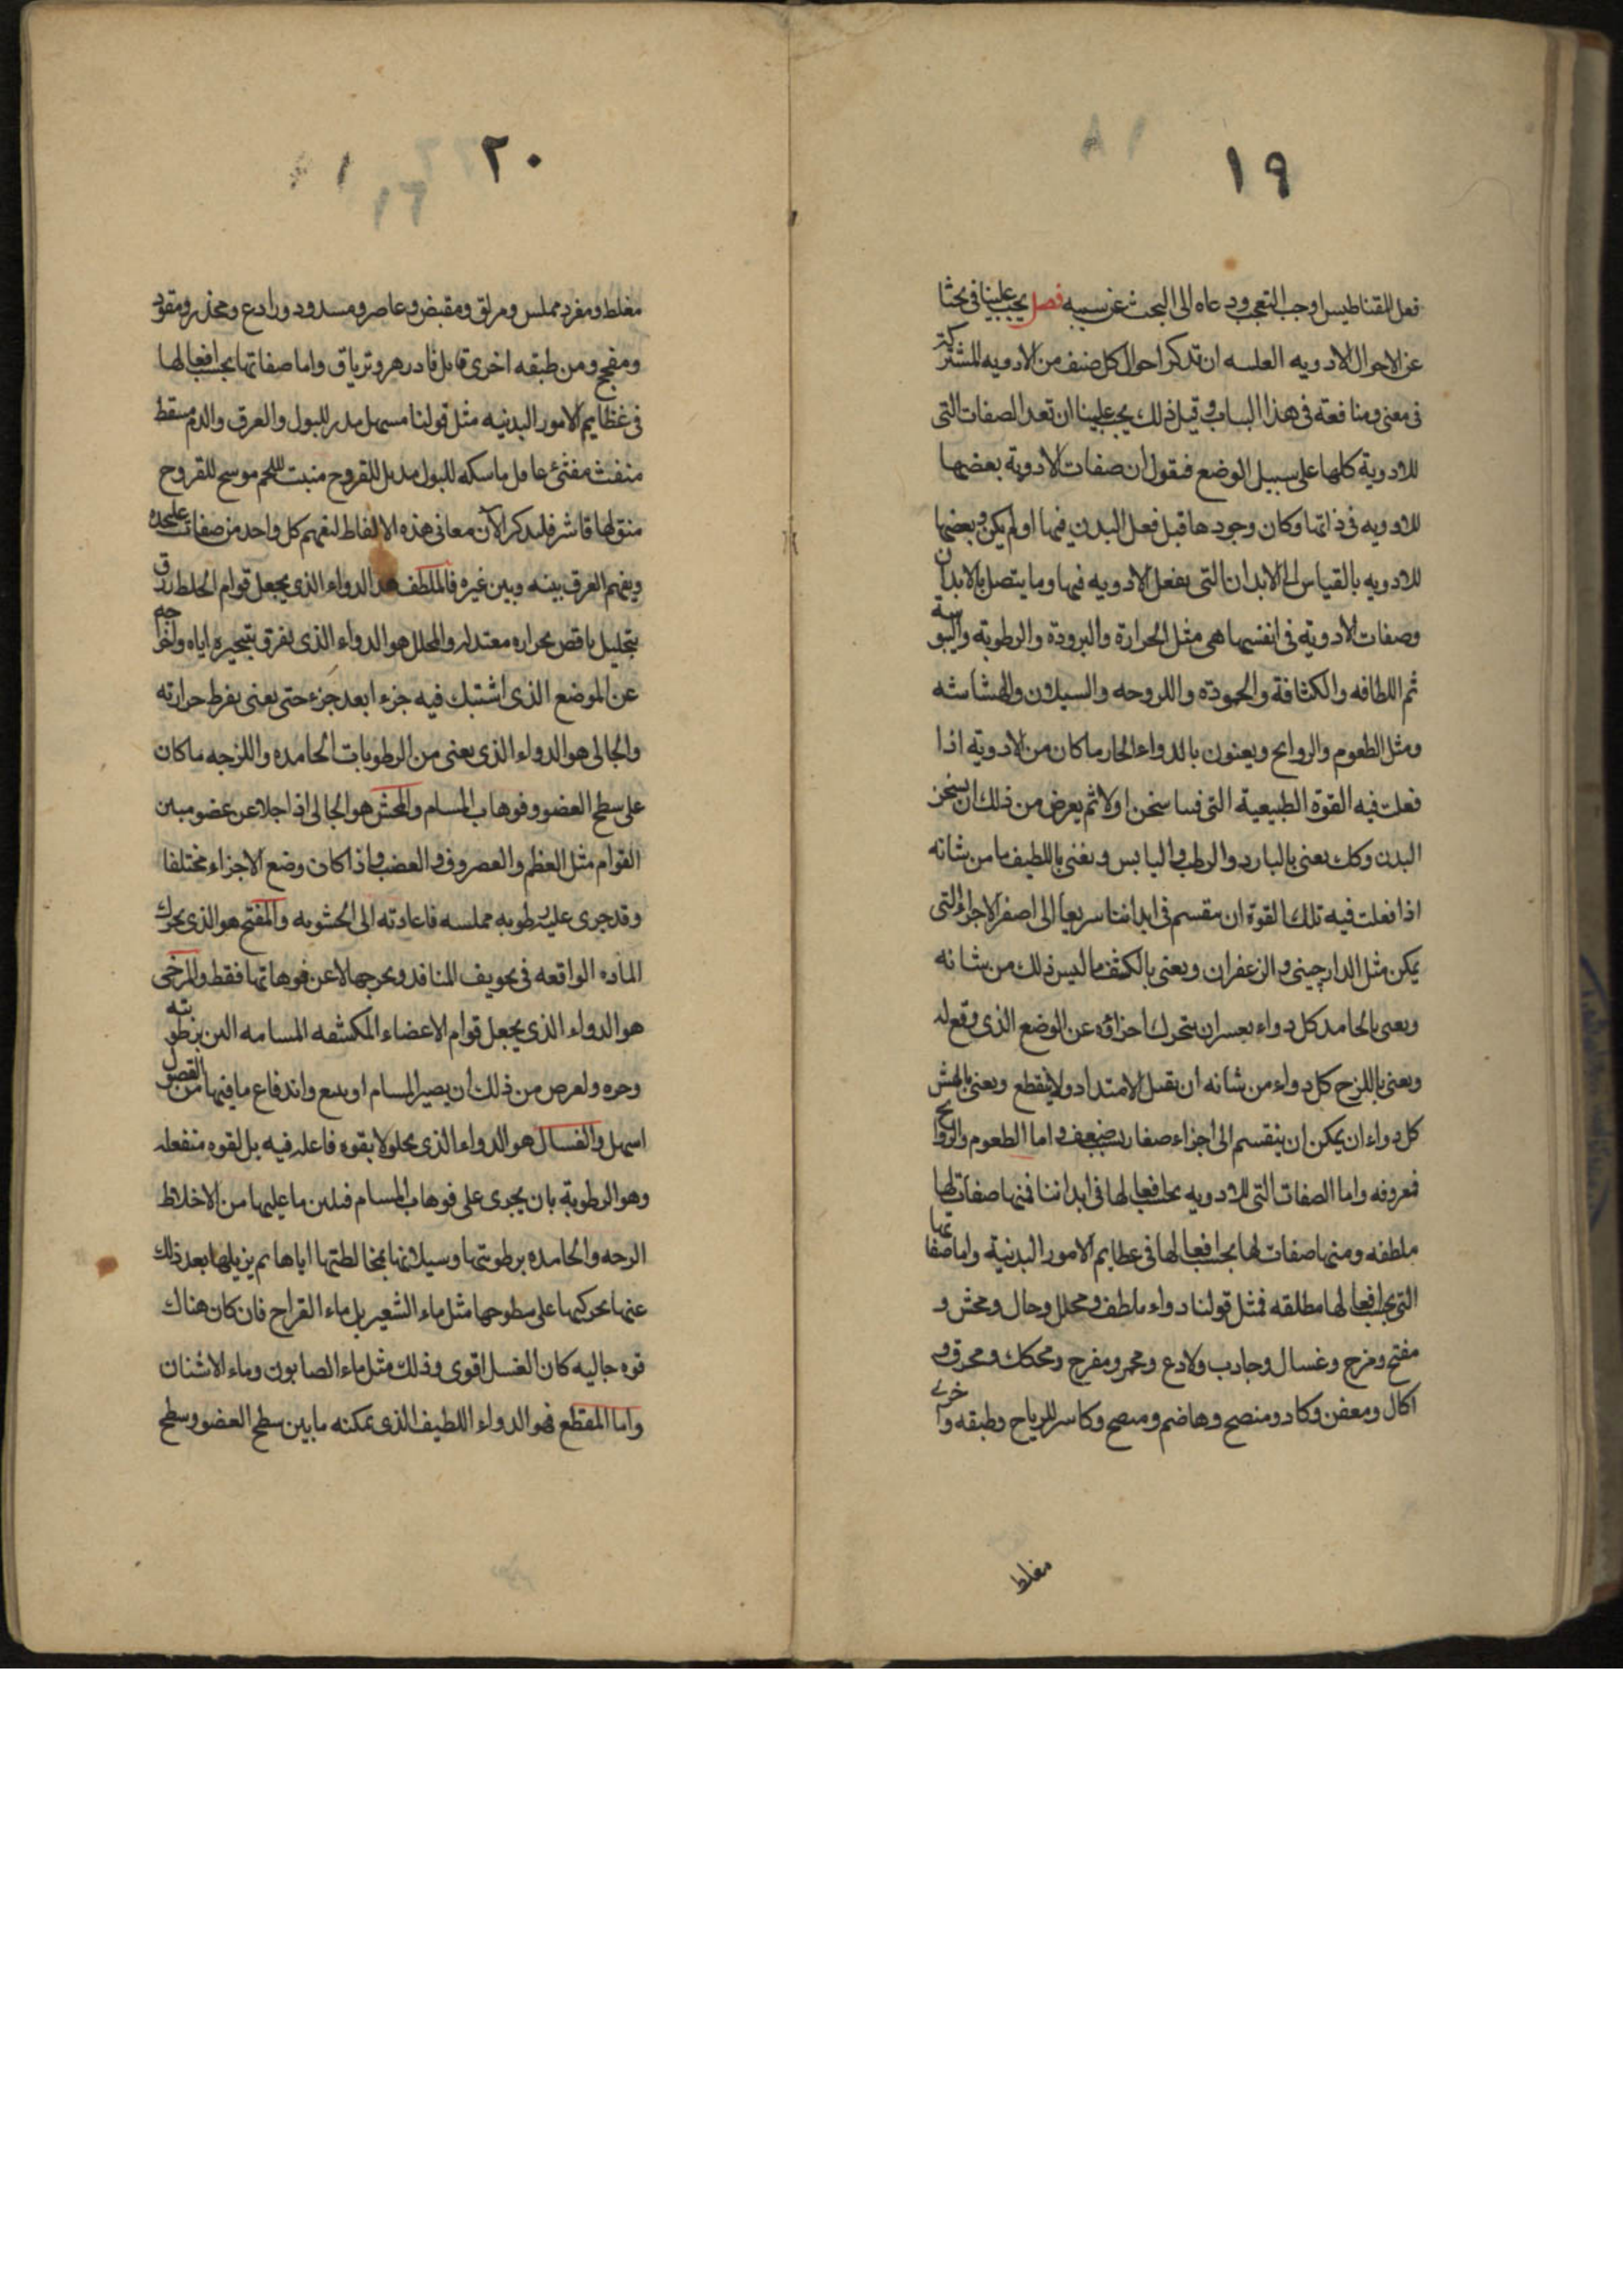 ١٩
فعل المقناطيس اوجب التعجب ودعاه الى البحث عن سببه فصل يجب علينا فى بحثنا
عن الاحوال الادويه ان تذكر احوال كل صنف من الادويه المشتركة
فى معنى ومنافعة فى هذا الباب وقبل ذلك يجب علينا ان تعد الصفات التى
للادوية كلها على سبيل الوضع فنقول ان صفات الادوية بعضها
للادويه فى ذاتها وكان وجودها قبل فعل البدن فيها او لم يكن وبعضها
للادويه بالقياس الى الابدان التى يفعل الادويه فيها وما يتصل بالابدان
وصفات الادوية فى انفسها هى مثل الحرارة والبرودة والرطوبة واليبوسة
ثم اللطافه والكثافة والجمودة واللزوجه والسيلان والهشاشه
ومثل الطعوم والروايح ويعنون بالدواء الحار ما كان من الادوية اذا
فعلت فيه القوة الطبيعية التى فينا سخن اولا ثم يعرض من ذلك ان يسخن
البدن وكك يعنى بالبارد والرطب واليابس ويعنى باللطيف ما من شانه
اذا فعلت فيه تلك القوة ان ينقسم فى ابداننا سريعا الى اصغر الاجزاء التى
يمكن مثل الدارچينى والزعفران ويعنى بالكثيف ما ليس ذلك من شانه
ويعنى بالجامد كل دواء يعسر ان يتحرك اجزاؤه عن الوضع الذى وقع له
ويعنى باللزج كل دواء من شانه ان يقبل الامتداد ولا ينقطع ويعنى بالهش
كل دواء ان يمكن ان ينقسم الى اجزاء صغار بضغف واما الطعوم والروايح
فمعروفه واما الصفات التى للادويه بحسب افعالها فى ابداننا فمنها صفات لها
مطلقه ومنها صفات لها بحسب افعالها فى عظايم الامور البدنية واما صفاتها
التى بحسب افعالها مطلقه فمثل قولنا دواء ملطف ومحلل وجال ومخش و
مفتح ومرخ وغسال وجاذب ولاذع ومحمر ومقرح ومحكك ومحرق و
اكال ومعفن وكاو ومنضج وهاضم وكاسر للرياح وطبقه واخرى
مغلظ
٢٠
مغلظ ومفرد مملس ومزلق ومقبض وعاصر ومسدود ورادع ومخذر ومقو
ومفجج ومن طبقه اخرى قاتل فادزهر وترياق واما صفاتها بحسب افعالها
فى عظايم الامور البدنيه مثل قولنا مسهل مدر للبول والعرق والدم مسقط
منفث مفتئ ماسكه للبول مدمل للقروح منبت للحم موسخ للقروح
منق لها قاشر فليذكر الآن معانى هذه الالفاظ لنفهم كل واحد من صفات عليحده
ويفهم الفرق بينه وبين غيره فالملطف هو الدواء الذى يجعل قوام الخلط ارق
بتحليل ناقص بحراره معتدله والمحلل هو الدواء الذى يفرق بتبخيره اياه واخراجه
عن الموضع الذى اشتبك فيه جزء ابعد جزء حتى يفنى بفرط حرارته
والجالى هو الدواء الذى يفنى من الرطوبات الجامده واللزجه ما كان
على سطح العضو وفوهات المسام والمخش هو الجالى اذا جلا عن عضو متين
القوام مثل العظم والغضروف والعصب واذا كان وضع الاجزاء مختلفا
وقد جرى عليه رطوبه مملسه فاعادته الى الخشونه والمفتح هو الذى يحرك
الماده الواقعه فى تجويف المنافذ ويخرجها لا عن فوهاتها فقط والمرخى
هو الدواء الذى يجعل قوام الاعضاء المكتنفه المسامه الين برطوبته
وحره ولعرض من ذلك ان يصير المسام اوسع واندفاع ما فيها من الفضول
اسهل والغسال هو الدواء الذى يجلو لا بقوه فاعله فيه بل لقوه منفعله
وهو الرطوبة بان يجرى على فوهات المسام فيلين ما عليها من الاخلاط
الزجه والجامده برطوبتها وسيلانها بمخالطتها اياها ثم يزيلها بعد ذلك
عنها بحركيها على سطوحها مثل ماء الشعير بل ماء القراح فان كان هناك
قوه جاليه كان الغسل اقوى وذلك مثل ماء الصابون وماء الاشنان
واما المقطع فهو الدواء اللطيف الذى يمكنه ما بين سطح العضو وسطح